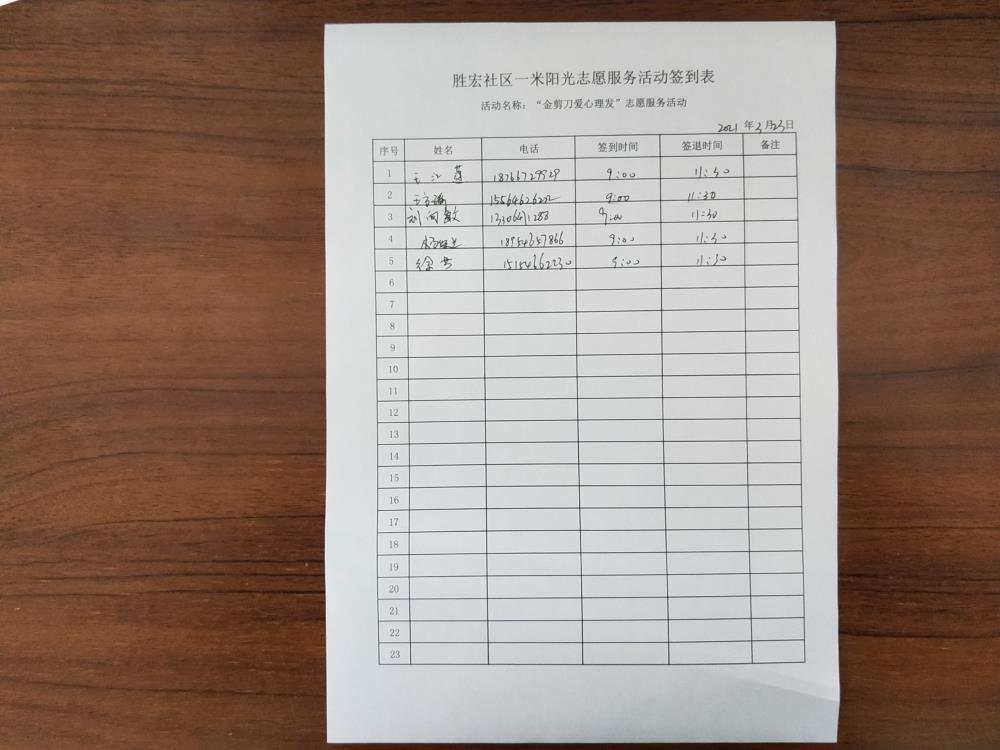 胜宏社区一米阳光志愿服务活动签到表
活动名称：“金剪刀爱心理发”志愿服务活动
2021 年 3 月 23 日
序号 姓名 电话 签到时间 签退时间 备注
1 王江莲 18766729929 9:00 11:30
2 15564626222 9:00 11:30
3 刘向敏 13306411288 9:00 11:30
4 18954657866 9:00 11:30
5 徐芸 15154662230 9:00 11:30
6
7
8
9
10
11
12
13
14
15
16
17
18
19
20
21
22
23